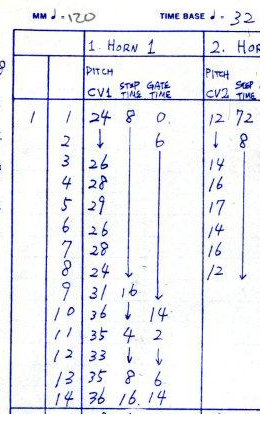 MM ♩= 120 TIME BASE ♩= 32
1. HORN 1 2. HOR
PITCH CV1 STEP TIME GATE TIME PITCH CV2 STEP
1 1 24 8 0 12 72
2 ↓ 6 ↓ 8
3 26 14
4 28 16
5 29 17
6 26 14
7 28 16
8 24 12
9 31 16
10 36 ↓ 14
11 35 4 2
12 33 ↓ ↓
13 35 8 6
14 36 16 14